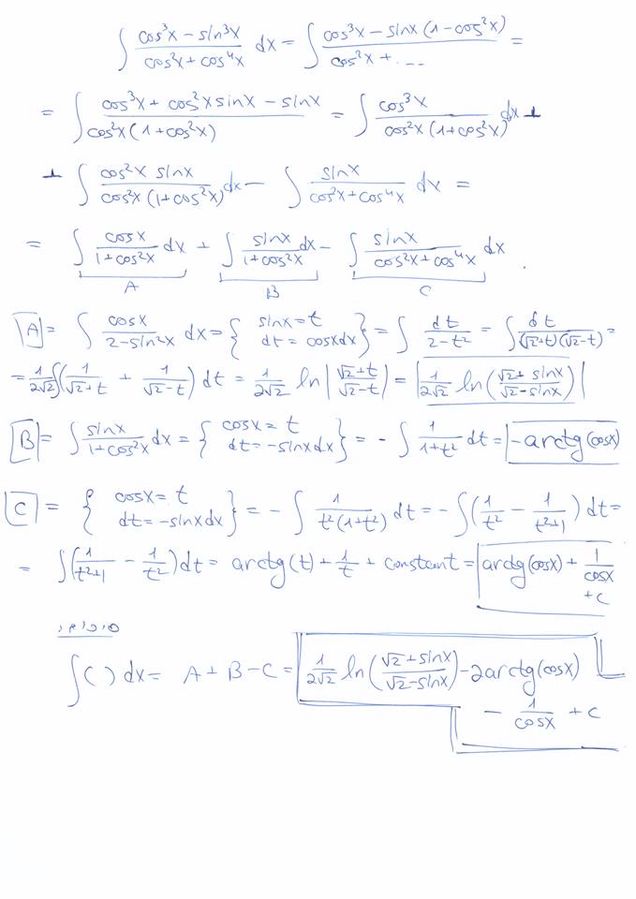 ∫ (cos³x − sin³x)/(cos²x + cos⁴x) dx = ∫ (cos³x − sinx (1 − cos²x))/(cos²x + ...) =
= ∫ (cos³x + cos²x sinx − sinx)/(cos²x (1 + cos²x)) = ∫ cos³x/(cos²x (1 + cos²x)) dx +
+ ∫ cos²x sinx/(cos²x (1 + cos²x)) dx − ∫ sinx/(cos²x + cos⁴x) dx =
= ∫ cosx/(1 + cos²x) dx + ∫ sinx/(1 + cos²x) dx − ∫ sinx/(cos²x + cos⁴x) dx .
A B C
A = ∫ cosx/(2 − sin²x) dx = { sinx = t dt = cosxdx } = ∫ dt/(2 − t²) = ∫ dt/((√2+t)(√2−t)) =
= 1/(2√2) ∫ (1/(√2+t) + 1/(√2−t)) dt = 1/(2√2) ln |(√2+t)/(√2−t)| = | 1/(2√2) ln ((√2+sinx)/(√2−sinx)) |
B = ∫ sinx/(1+cos²x) dx = { cosx = t dt = −sinxdx } = − ∫ 1/(1+t²) dt = −arctg(cosx)
C = { cosx = t dt = −sinxdx } = − ∫ 1/(t²(1+t²)) dt = − ∫ (1/t² − 1/(t²+1)) dt =
= ∫ (1/(t²+1) − 1/t²) dt = arctg(t) + 1/t + constant = arctg(cosx) + 1/cosx + c
∫ ( ) dx = A + B − C = 1/(2√2) ln ((√2+sinx)/(√2−sinx)) − 2arctg(cosx)
− 1/cosx + c